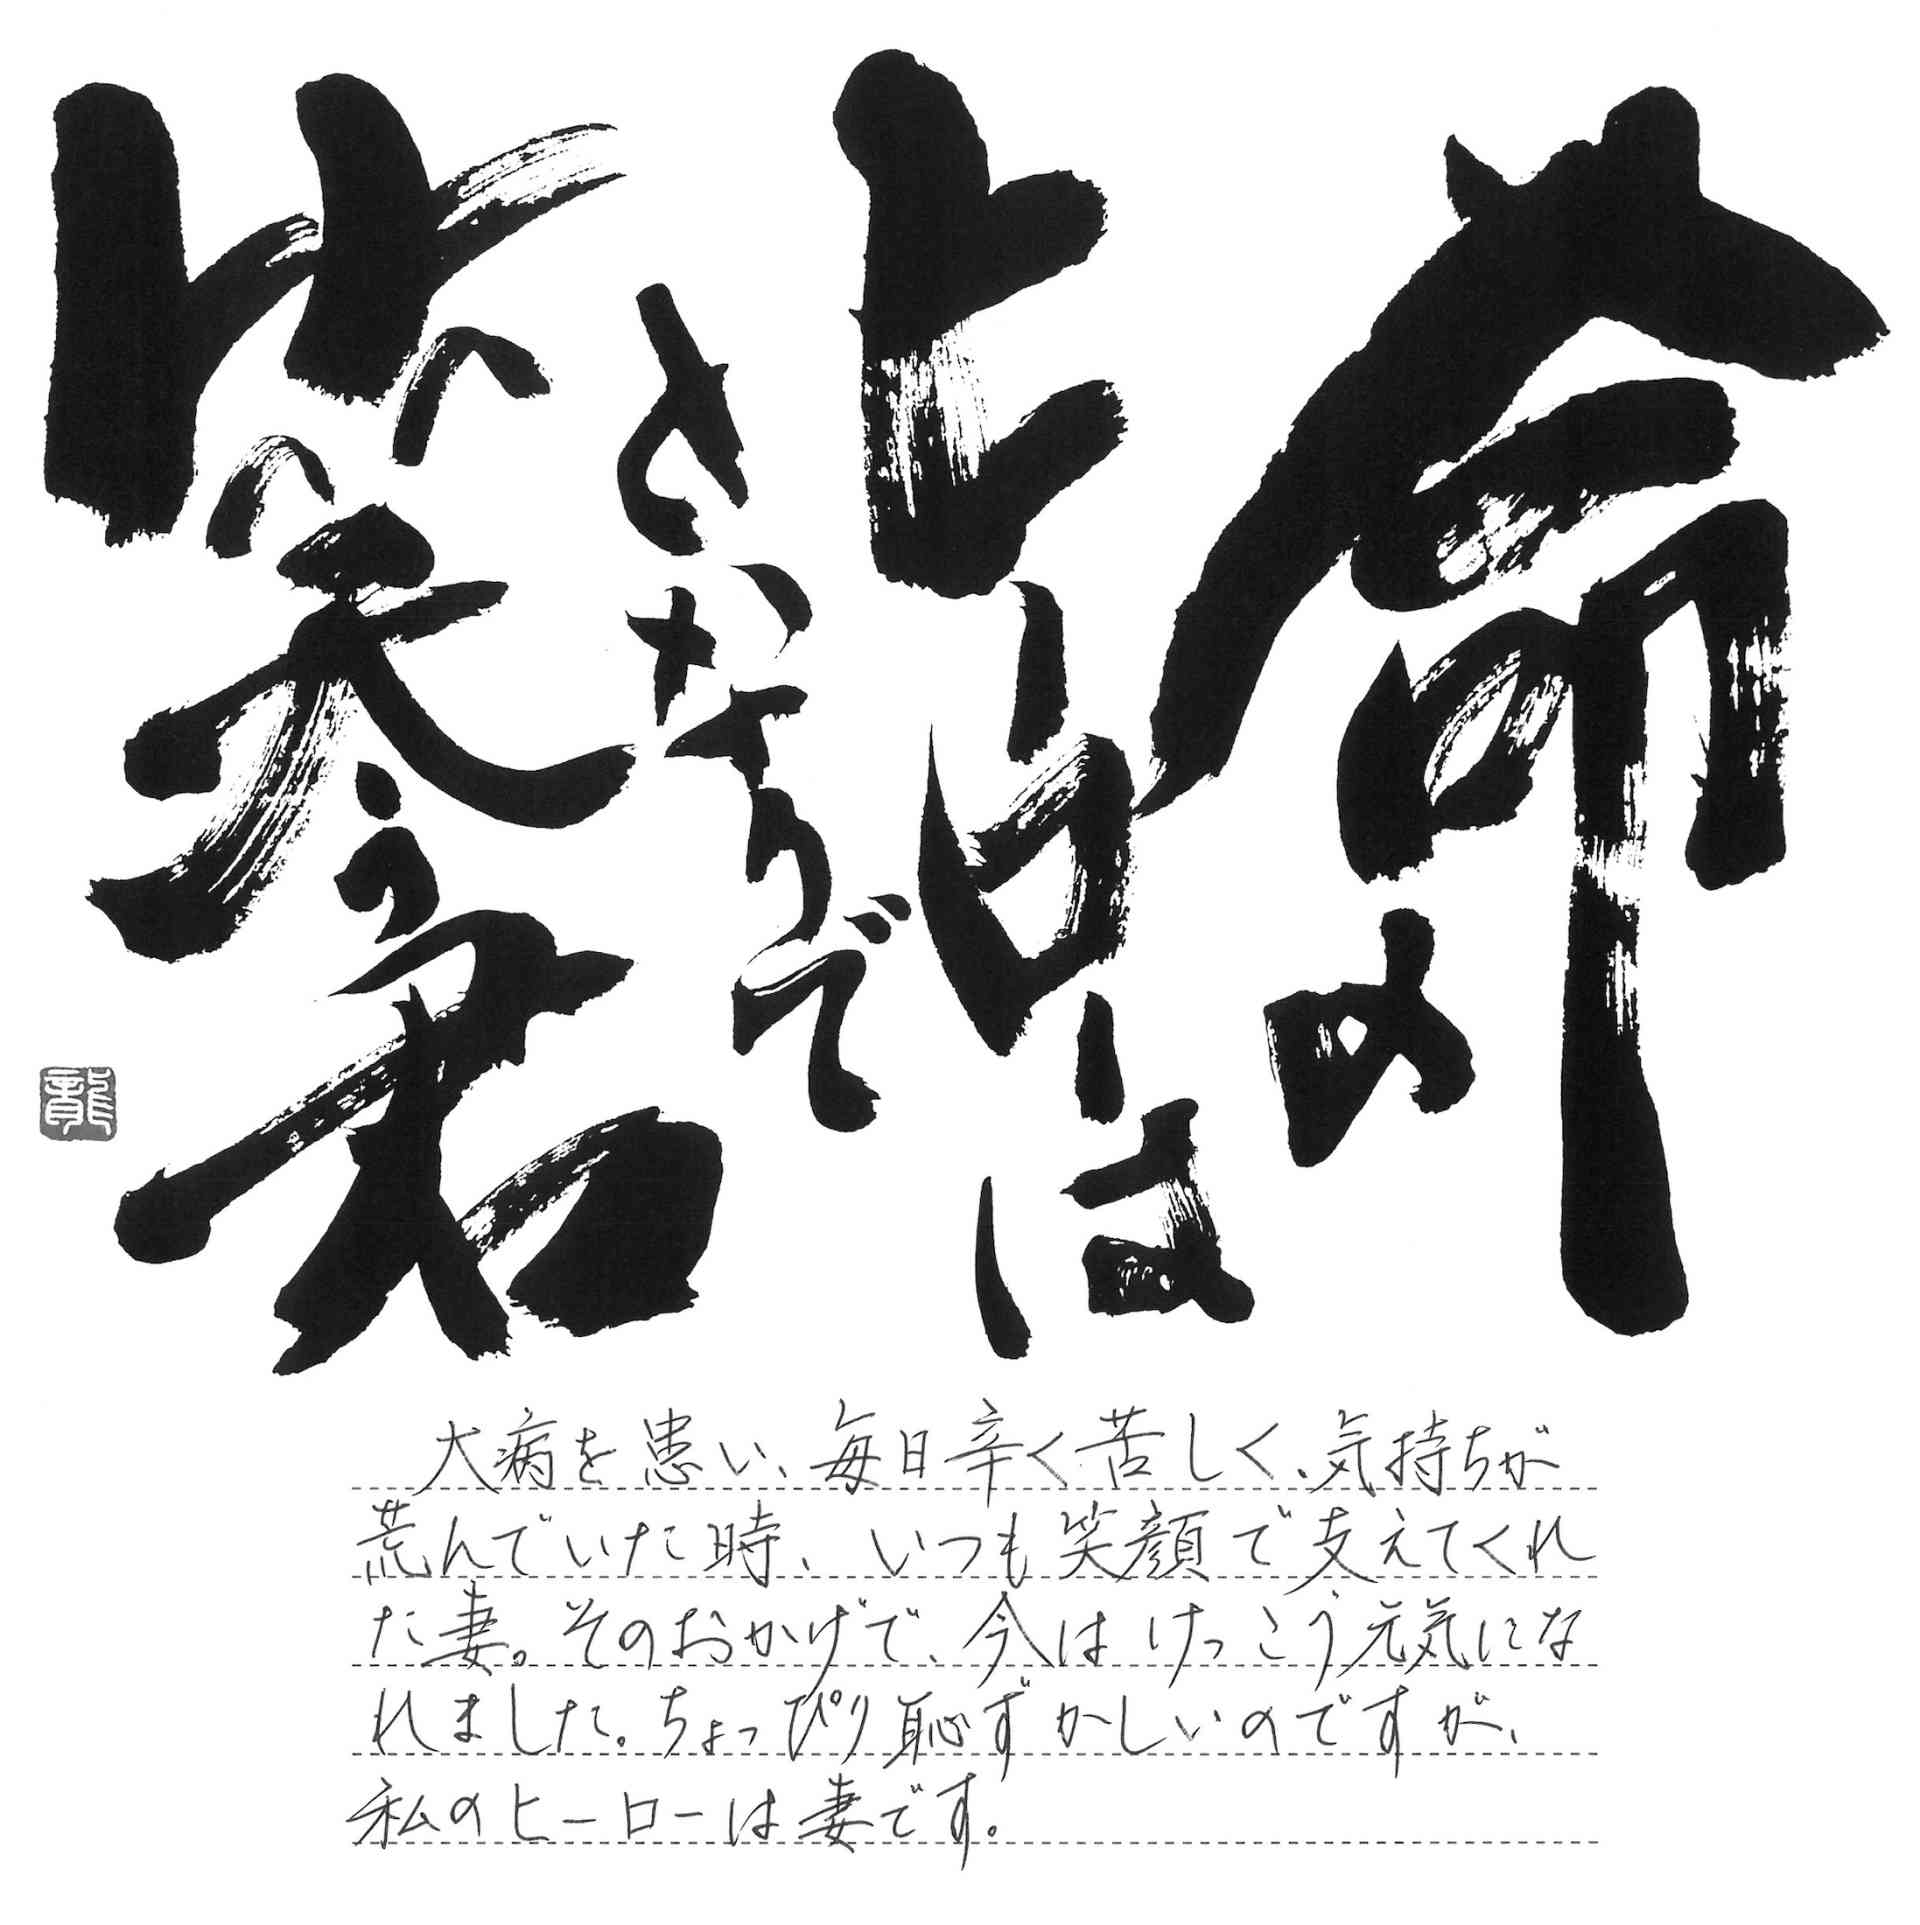 命の
ヒーローは
となりで
笑う君
龍
大病を患い、毎日辛く苦しく、気持ちが
荒んでいた時、いつも笑顔で支えてくれ
た妻。そのおかげで、今はけっこう元気にな
れました。ちょっぴり恥ずかしいのですが、
私のヒーローは妻です。